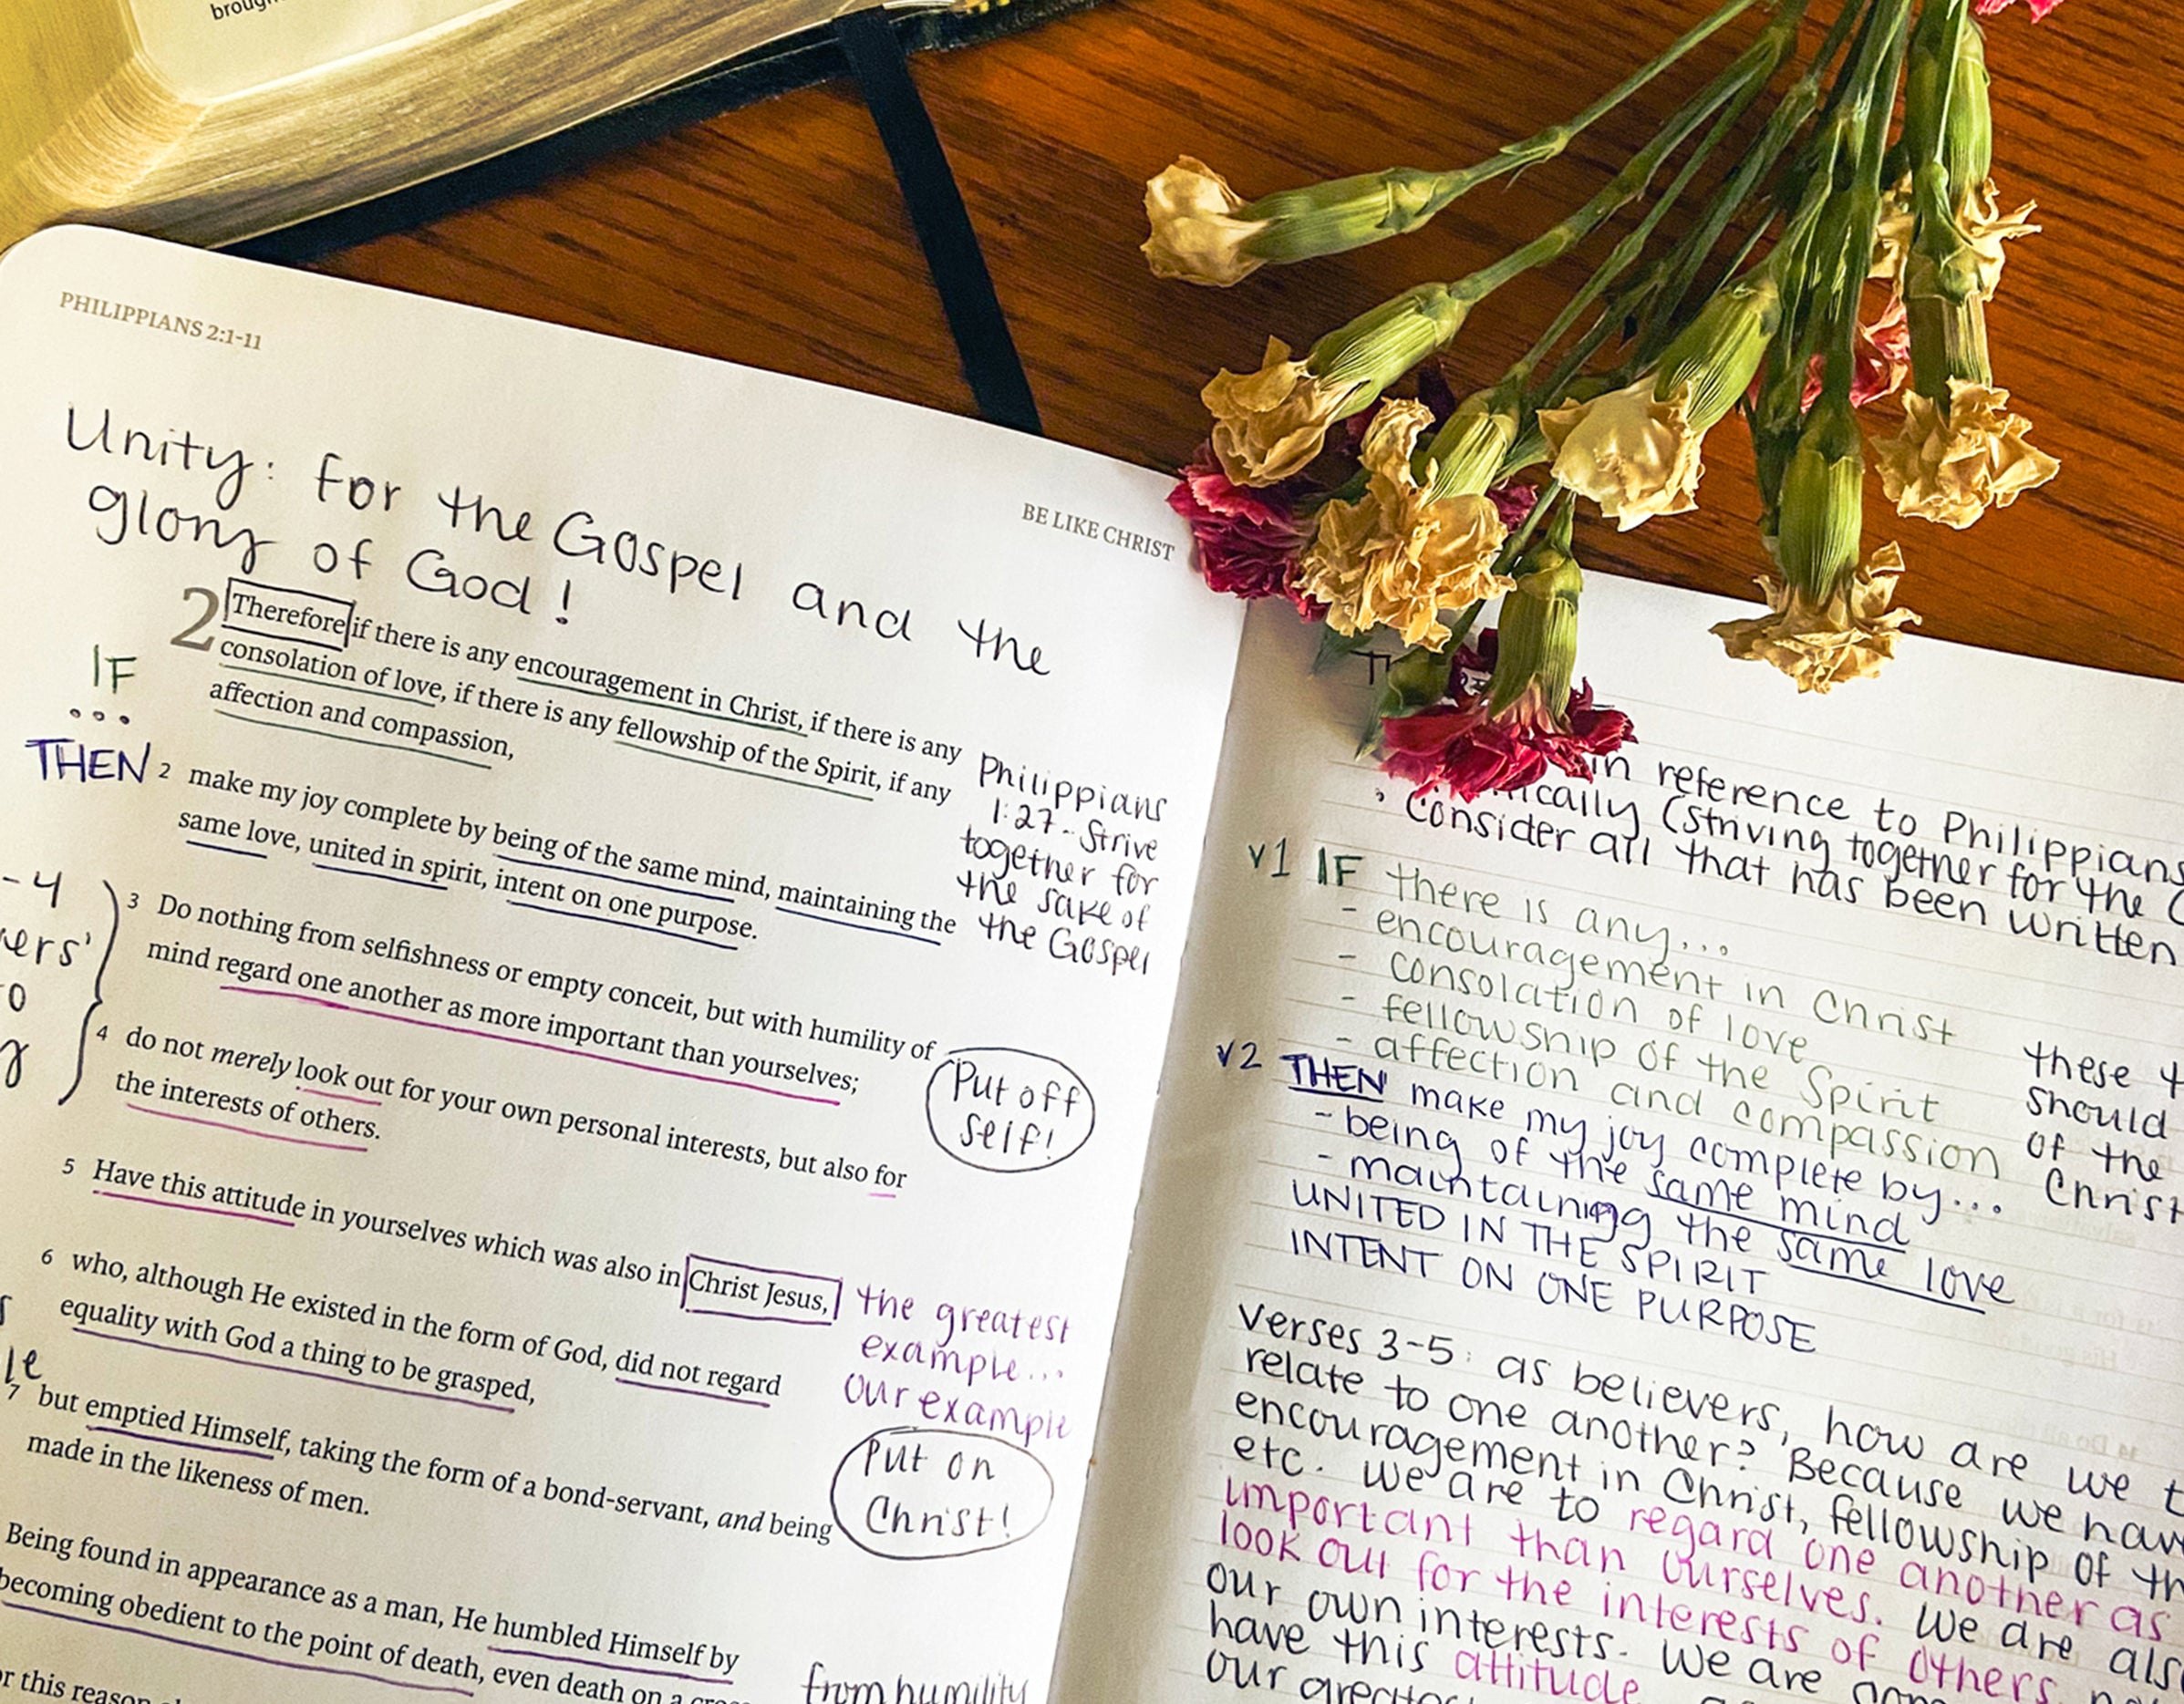 brough
PHILIPPIANS 2:1-11
BE LIKE CHRIST
Unity: for the Gospel and the
glory of God!
2 Therefore if there is any encouragement in Christ, if there is any
consolation of love, if there is any fellowship of the Spirit, if any
affection and compassion,
IF
...
THEN
2 make my joy complete by being of the same mind, maintaining the
same love, united in spirit, intent on one purpose.
Philippians
1:27-Strive
together for
the sake of
the Gospel
-4
3 Do nothing from selfishness or empty conceit, but with humility of
mind regard one another as more important than yourselves;
4 do not merely look out for your own personal interests, but also for
the interests of others.
Put off
self!
5 Have this attitude in yourselves which was also in Christ Jesus,
6 who, although He existed in the form of God, did not regard
equality with God a thing to be grasped,
the greatest
example...
our example
7 but emptied Himself, taking the form of a bond-servant, and being
made in the likeness of men.
Put on
Christ!
Being found in appearance as a man, He humbled Himself by
becoming obedient to the point of death, even death on a
this reason
from humility
in reference to Philippians
ically (striving together for the
Consider all that has been written
v1 IF there is any...
- encouragement in Christ
- consolation of love
- fellowship of the Spirit
- affection and compassion
these
should
of the
Christ
v2 THEN make my joy complete by...
- being of the same mind
- maintaining the same love
UNITED IN THE SPIRIT
INTENT ON ONE PURPOSE
Verses 3-5: as believers, how are we
relate to one another? Because we have
encouragement in Christ, fellowship of
etc. We are to regard one another as
important than ourselves. We are
look out for the interests of others
our own interests. We are
have this attitude
our